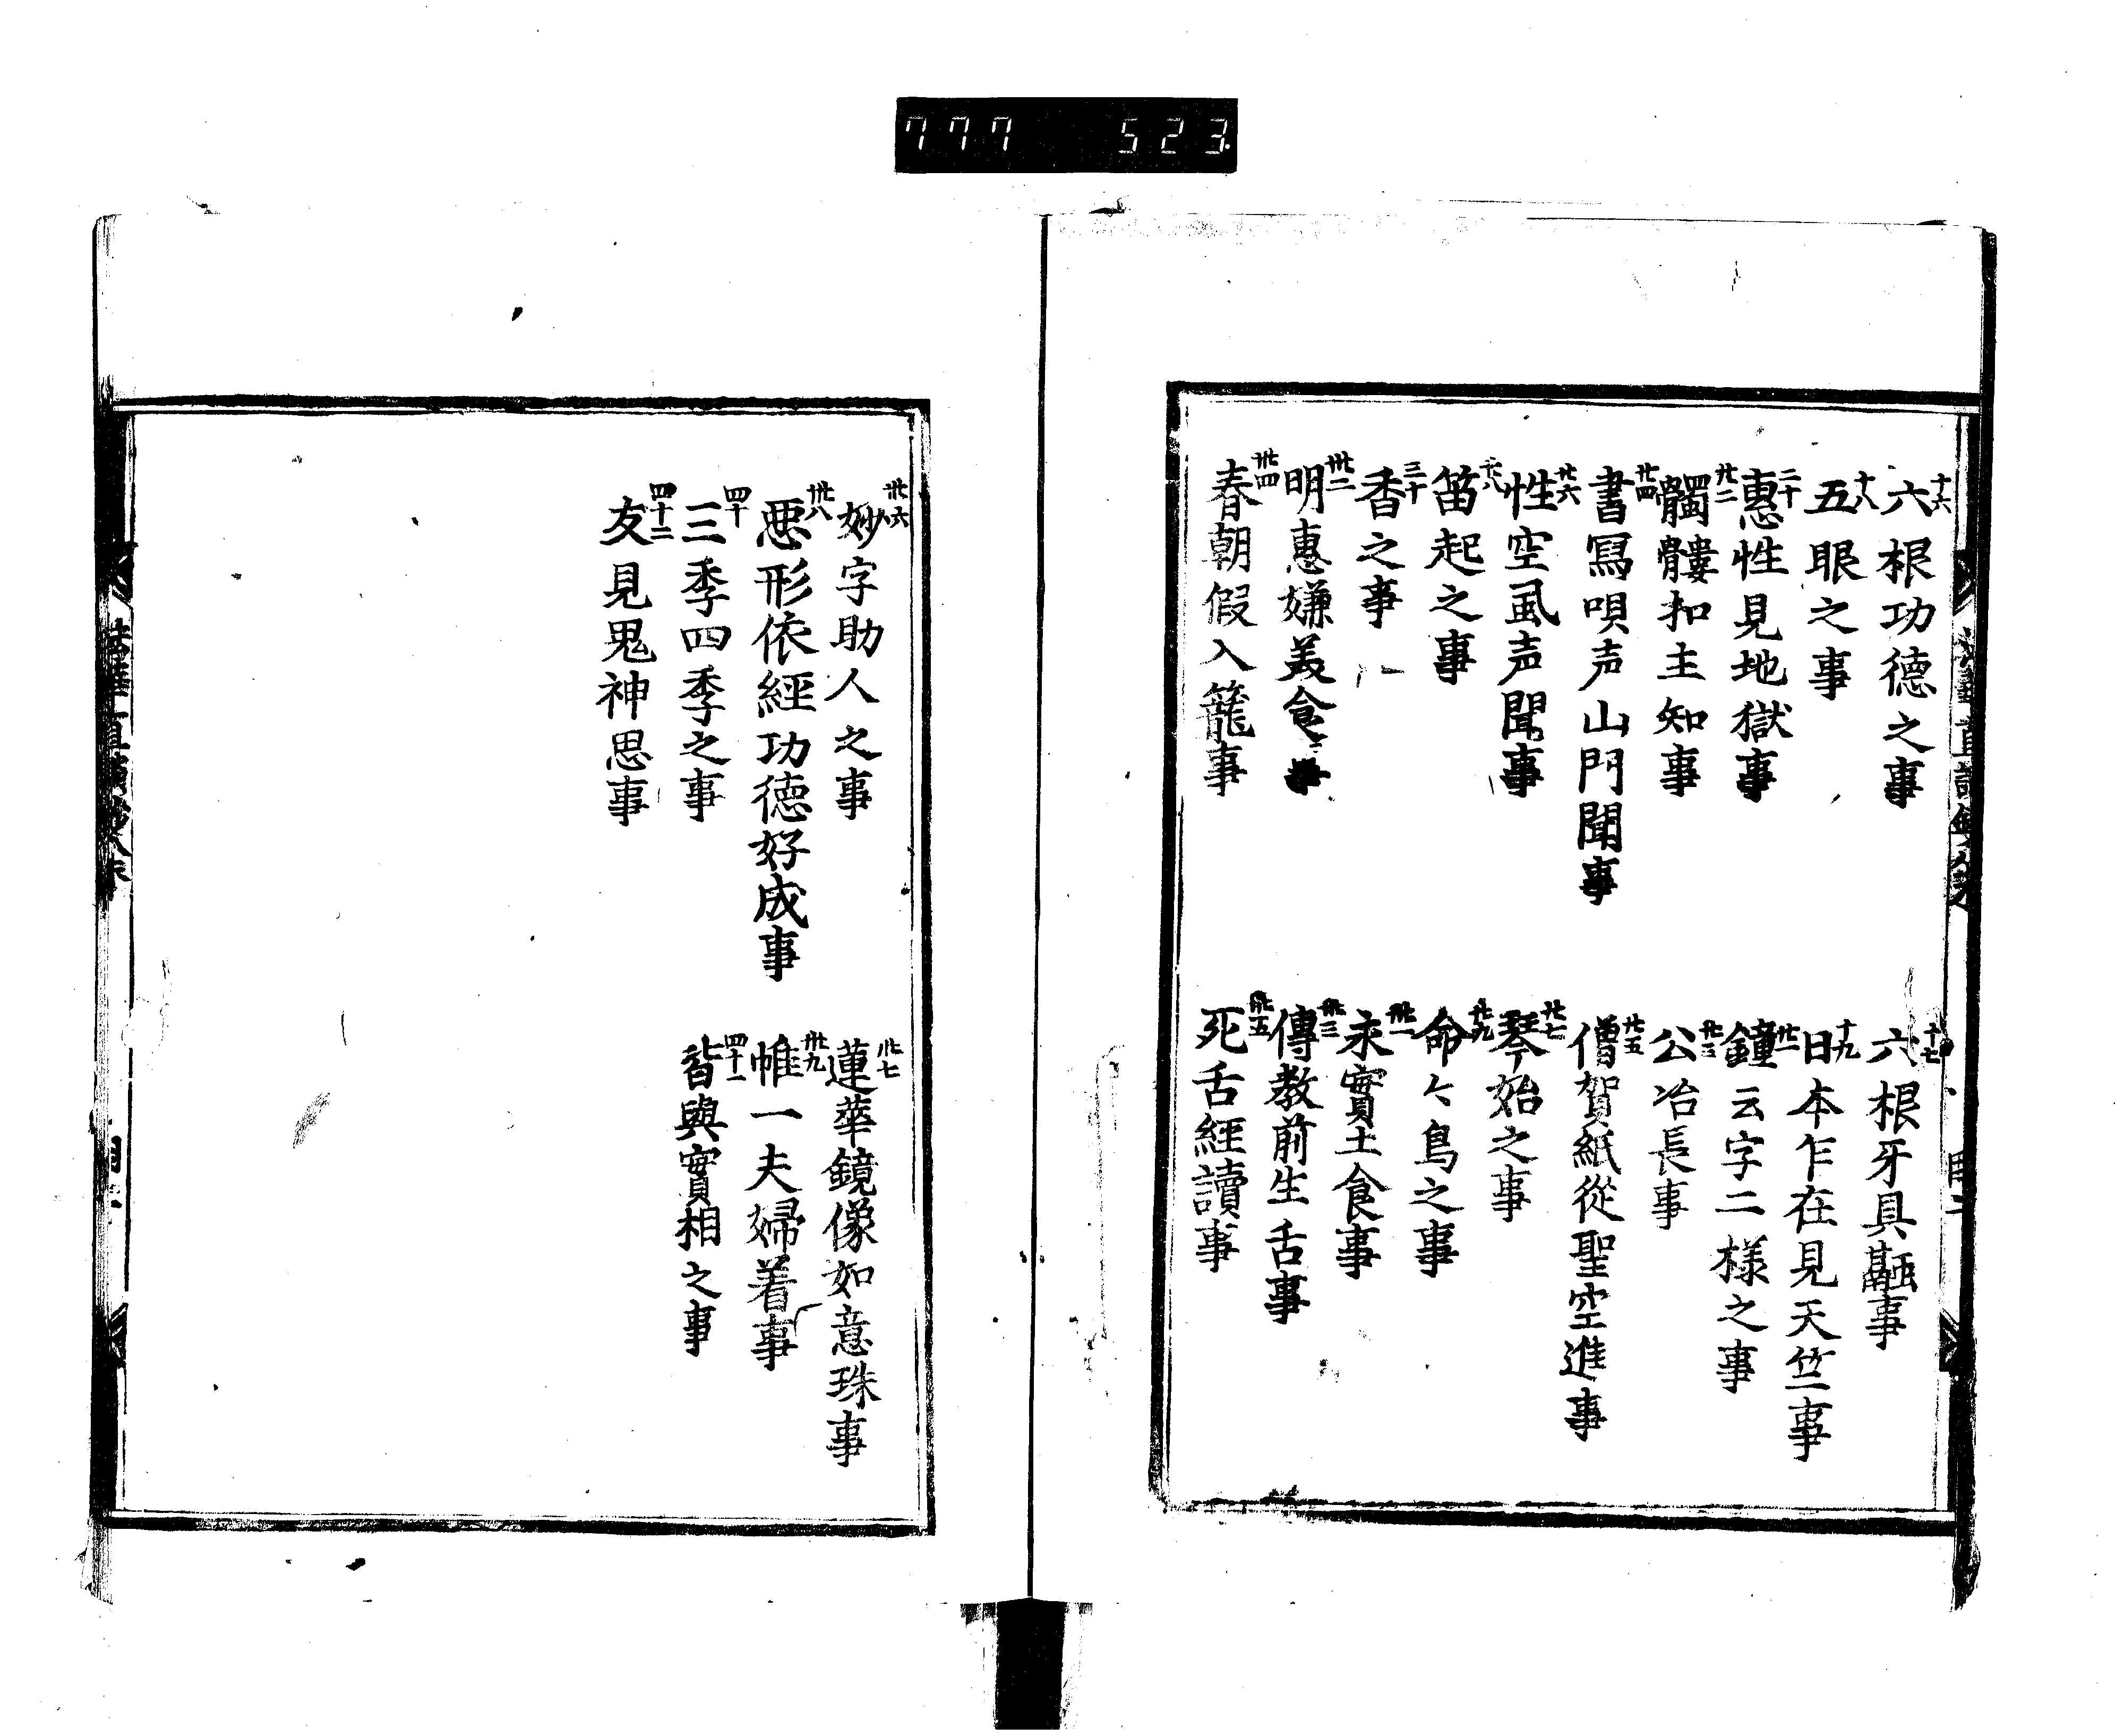 777 523
十六 六根功德之事
十七 六根牙具融事
十八 五眼之事
十九 日本乍在見天竺事
二十 惠性見地獄事
廿一 鐘云字二樣之事
廿二 髑髏扣主知事
廿三 公冶長事
廿四 書冩唄声山門聞事
廿五 僧賀紙從聖空進事
廿六 性空虱声聞事
廿七 琴始之事
廿八 笛起之事
廿九 命々鳥之事
三十 香之事
卅一 求實土食事
卅二 明惠嫌美食事
卅三 傳教前生舌事
卅四 春朝假入籠事
卅五 死舌經讀事
卅六 妙字助人之事
卅七 蓮華鏡像如意珠事
卅八 惡形依經功德好成事
卅九 帷一夫婦着事
四十 三季四季之事
四十一 皆與實相之事
四十二 友見鬼神思事